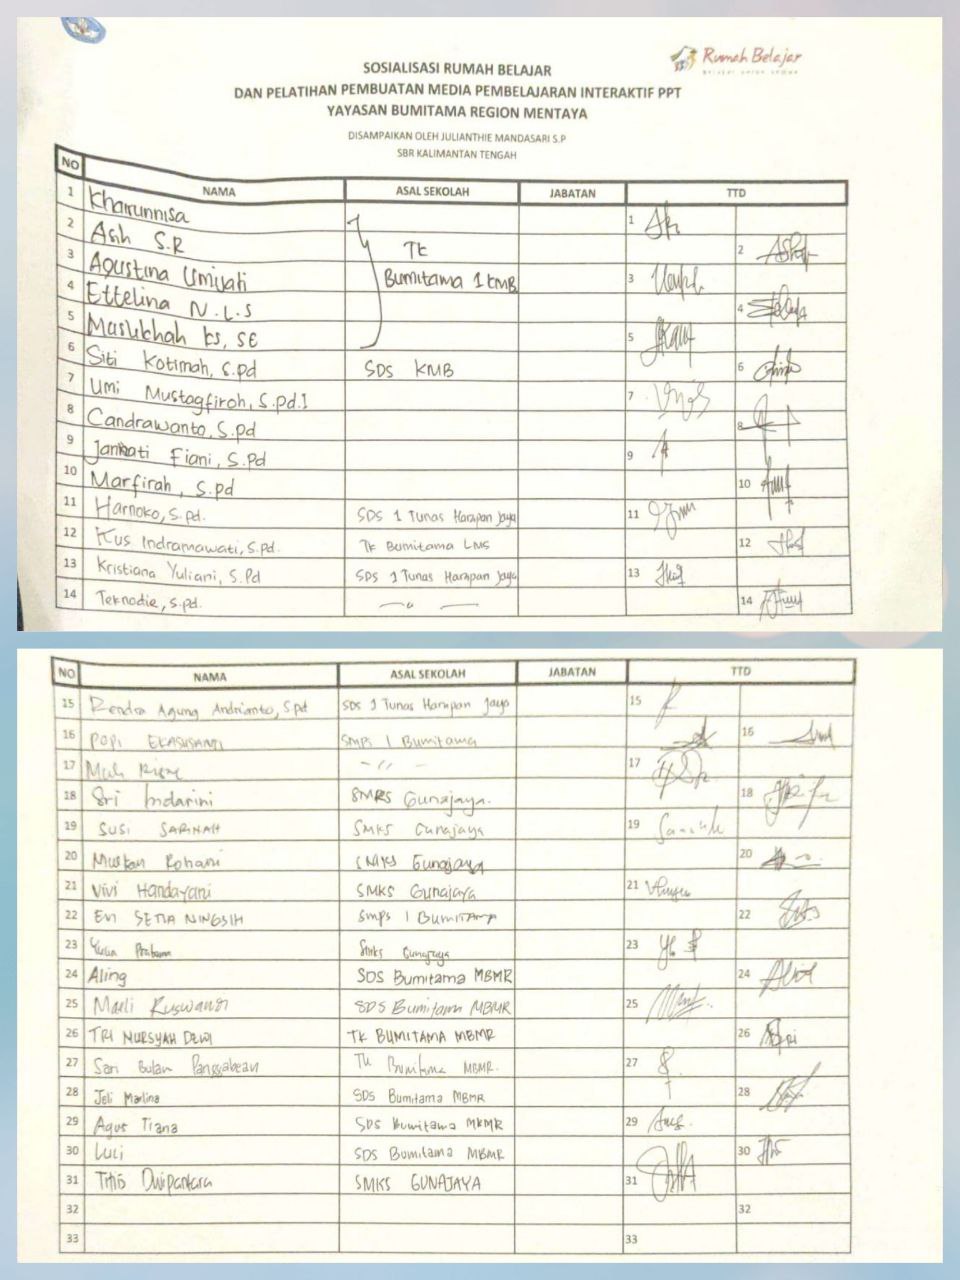 Rumah Belajar
SOSIALISASI RUMAH BELAJAR
DAN PELATIHAN PEMBUATAN MEDIA PEMBELAJARAN INTERAKTIF PPT
YAYASAN BUMITAMA REGION MENTAYA
DISAMPAIKAN OLEH JULIANTHIE MANDASARI S.P
SBR KALIMANTAN TENGAH
NO NAMA ASAL SEKOLAH JABATAN TTD
1 Khairunnisa 1
2 Asih S.R TK 2
3 Agustina Umiyati Bumitama 1 KMB 3
4 Ettelina N.L.S 4
5 Maslikhah ks, SE 5
6 Siti Kotimah, S.pd SDS KMB 6
7 Umi Mustagfiroh, S.pd.I 7
8 Candrawanto, S.pd 8
9 Fiani, S.pd 9
10 Marfirah, S.pd 10
11 Harnoko, S.pd. SDS 1 Tunas Harapan Jaya 11
12 Kus Indramawati, S.pd. TK Bumitama LNS 12
13 Kristiana Yuliani, S.Pd SDS 1 Tunas Harapan Jaya 13
14 Teknodie, S.pd. — " — 14
NO NAMA ASAL SEKOLAH JABATAN TTD
15 Rendra Agung Andrianto, S.pd SDS 1 Tunas Harapan Jaya 15
16 POPI EKASUSANTI SMPS 1 Bumitama 16
17 Muh - " - 17
18 Sri Indarini SMKS Gunajaya. 18
19 SUSI SARINAH SMKS Gunajaya 19
20 Rohani SMKS Gunajaya 20
21 Vivi Handayani SMKS Gunajaya 21
22 EVI SETIA NINGSIH Smps 1 BUMITAMA 22
23 Yulia Smks Gunajaya 23
24 Aling SDS Bumitama MBMR 24
25 Marli Ruswandi SDS Bumitama MBMR 25
26 TRI NURSYAH DEWI TK BUMITAMA MBMR 26
27 Sari Bulan Panggabean TK Bumitama MBMR. 27
28 Jeli Marlina SDS Bumitama MBMR 28
29 Agus Tiana SDS Bumitama MBMR 29
30 Luci SDS Bumitama MBMR 30
31 Titis Dwipantara SMKS GUNAJAYA 31
32 32
33 33